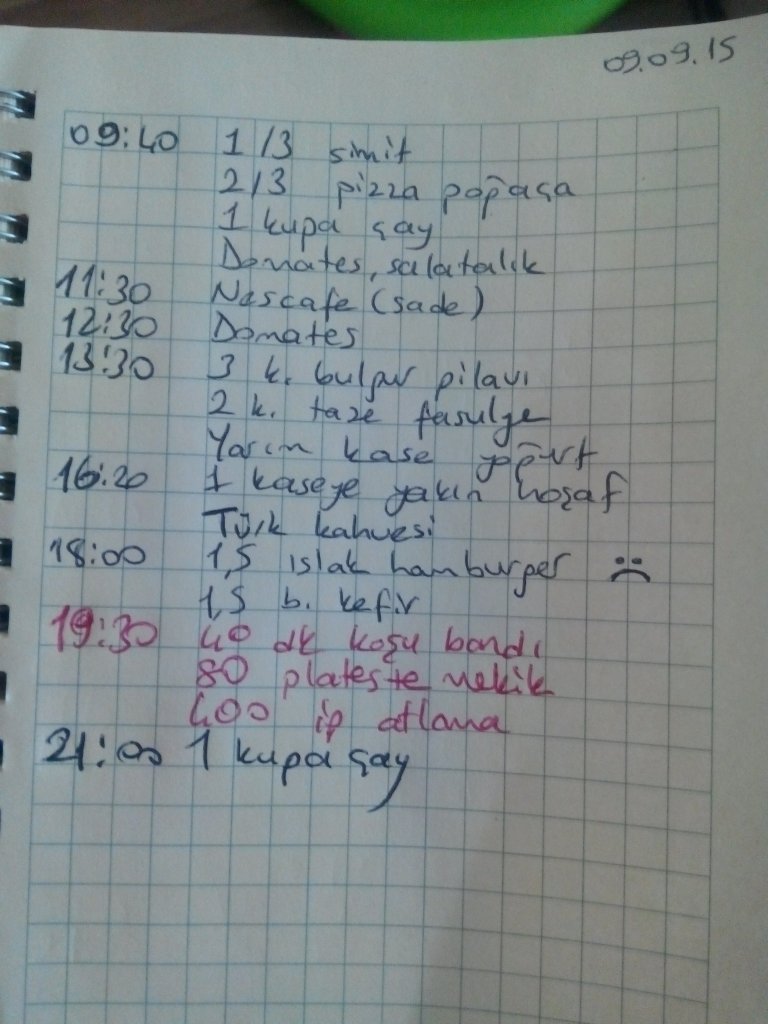 09.09.15
09:40 1/3 simit
2/3 pizza poğaça
1 kupa çay
Domates, salatalık
11:30 Nescafe (sade)
12:30 Domates
13:30 3 k. bulgur pilavı
2 k. taze fasulye
Yarım kase yoğurt
16:20 1 kaseye yakın hoşaf
Türk kahvesi
18:00 1,5 ıslak hamburger ☹
1,5 b. kefir
19:30 40 dk koşu bandı
80 plateste mekik
400 ip atlama
21:00 1 kupa çay